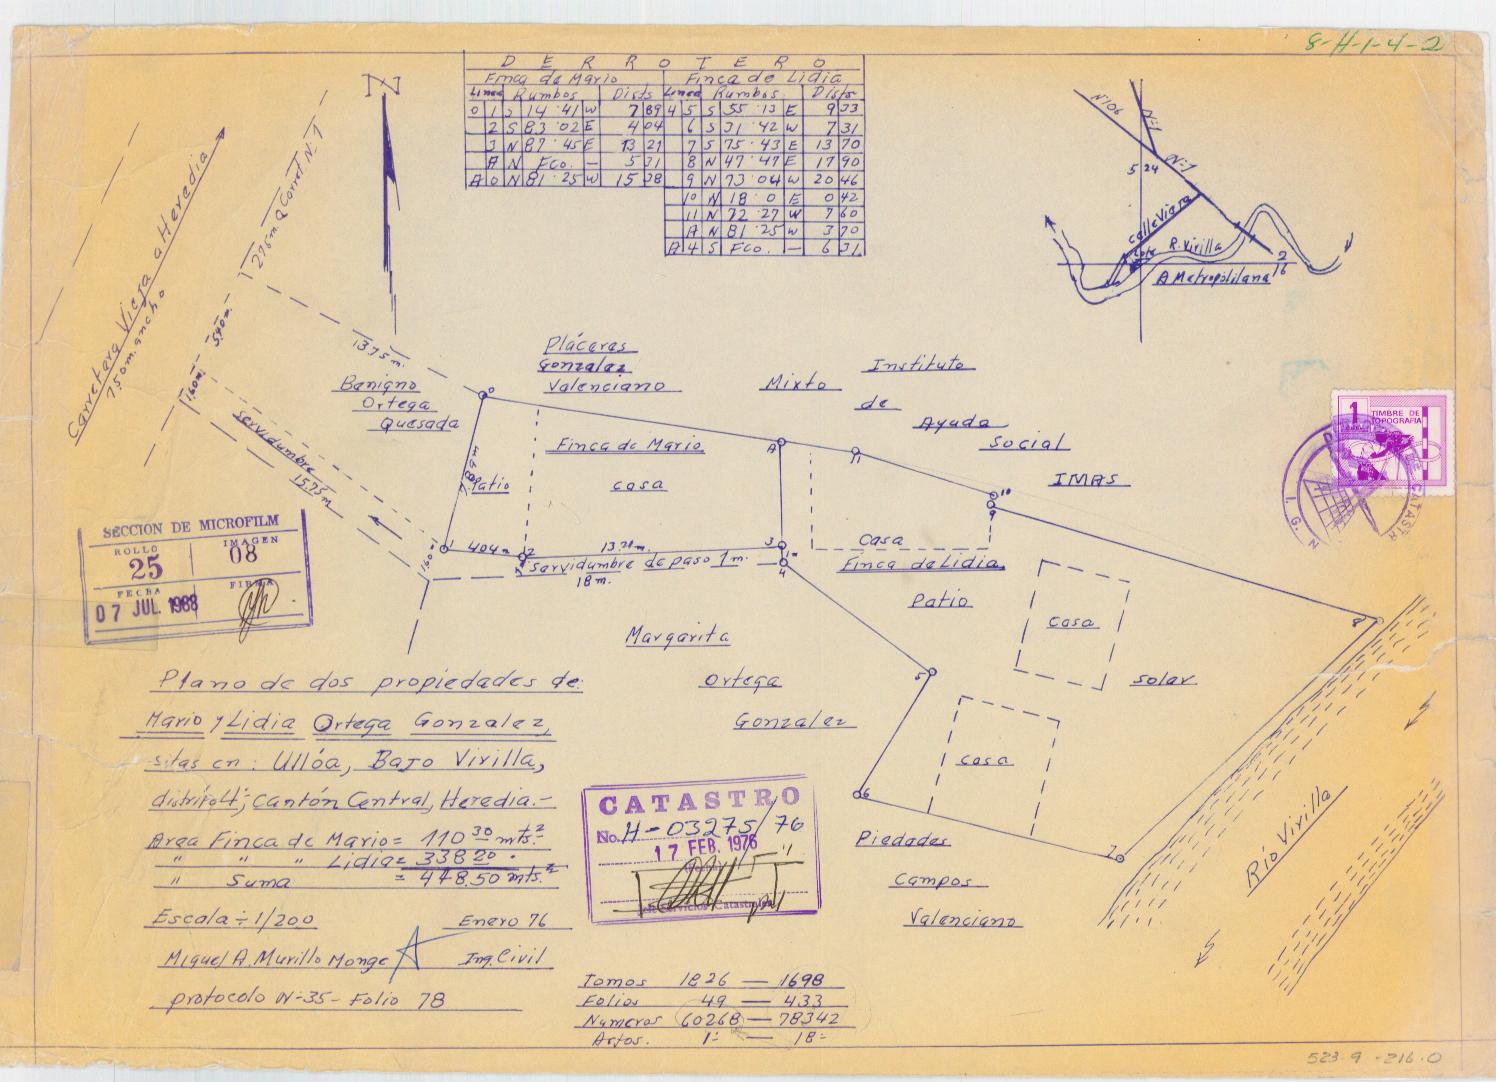 8-H-1-4-2
DERROTERO
Finca de Mario Finca de Lidia
Linea Rumbos Dists Linea Rumbos Dists
0 1 S 14·41 W 7 89 4 5 S 55·13 E 9 33
2 S 83·02 E 4 04 6 S 31·42 W 7 31
3 N 87·45 E 13 21 7 S 75·43 E 13 70
A N Fco. — 5 31 8 N 47·47 E 17 90
A 0 N 81·25 W 15 38 9 N 73·04 W 20 46
10 N 18·0 E 0 42
11 N 72·27 W 7 60
A N 81·25 W 3 70
A 4 S Fco. — 6 31
N
Nº106
Nº1
Nº1
5 24
calle Vieja
Lote
R. Virilla
2
16
A Metropolitana
Carretera Vieja a Heredia
7.50m. ancho
276m. a Corret. Nº1
5.90m.
1.60m.
13.75m.
servidumbre
15.75m.
1.60m
Benigno
Ortega
Quesada
Pláceres
Gonzalez
Valenciano
Mixto
Instituto
de
Ayuda
Social
IMAS
0
7.89m
Patio
Finca de Mario
casa
A
11
10
9
1
4.04m
2
13.21m.
3
1m
4
servidumbre de paso 1m.
18m.
Casa
Finca de Lidia
Patio
casa
8
solar
Margarita
Ortega
Gonzalez
5
casa
6
7
Piedades
Campos
Valenciano
Río Virilla
1 TIMBRE DE
TOPOGRAFIA
I. G. N.
CATASTR
SECCION DE MICROFILM
ROLLO
25
IMAGEN
08
FECHA
07 JUL. 1988
FIRMA
Plano de dos propiedades de:
Mario y Lidia Ortega Gonzalez,
sitas en: Ullóa, Bajo Virilla,
distrito 4º; Cantón Central, Heredia.-
Area Finca de Mario = 110 30 mts.2
" " " Lidia = 338 20 "
" Suma = 448.50 mts.2
Escala ÷ 1/200 Enero 76
Miguel A. Murillo Monge Ing. Civil
protocolo Nº35 - Folio 78
CATASTRO
No. H-03275/76
17 FEB. 1976
Jefe Servicios Catastrales
Tomos 1826 — 1698
Folios 49 — 433
Numeros 60268 — 78342
Astos. 1º — 18º
523-9 -216-0